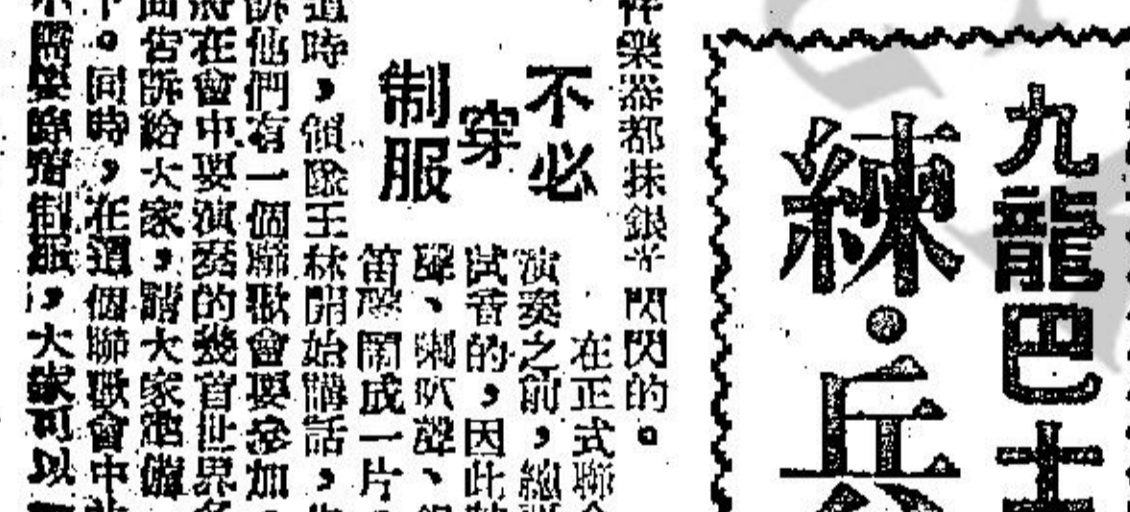 九龍巴士
練·兵
件樂器都抹銀光閃閃的。
不必
穿
制服
在正式聯
演奏之前，總
試音的，因此
聲、喇叭聲、
笛聲鬧成一片
這時，領隊王林開始講話，
訴他們有一個聯歡會要參加，
將在會中要演奏的幾首世界名
告訴給大家，請大家準備
下。同時，在這個聯歡會中
不需要穿著制服，大家可以